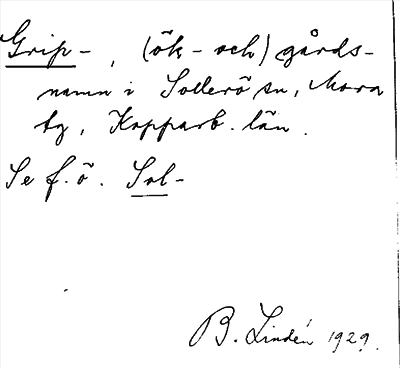 Grip- , (ök- och) gårds-
namn i Sollerö sn, Mora
tg, Kopparb. län.
Se f. ö. Sol-
B. Lindén 1929.